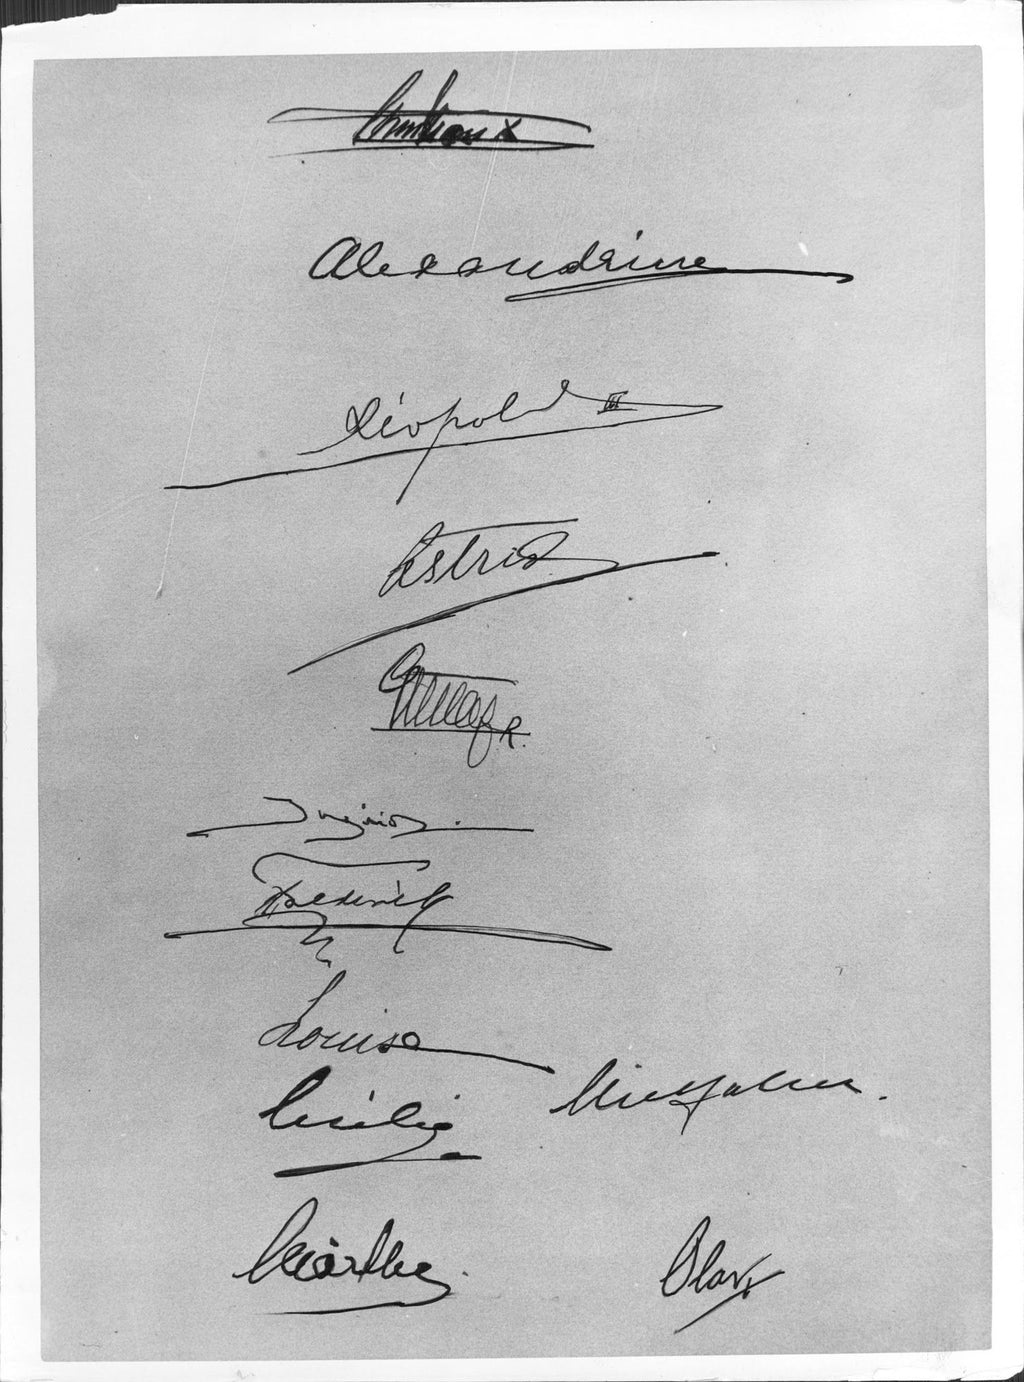 Christian X
Alexandrine
Léopold III
Astrid
Gustaf R.
Ingrid.
Frederik
Louise
Cécilie
Märtha.
Olav.